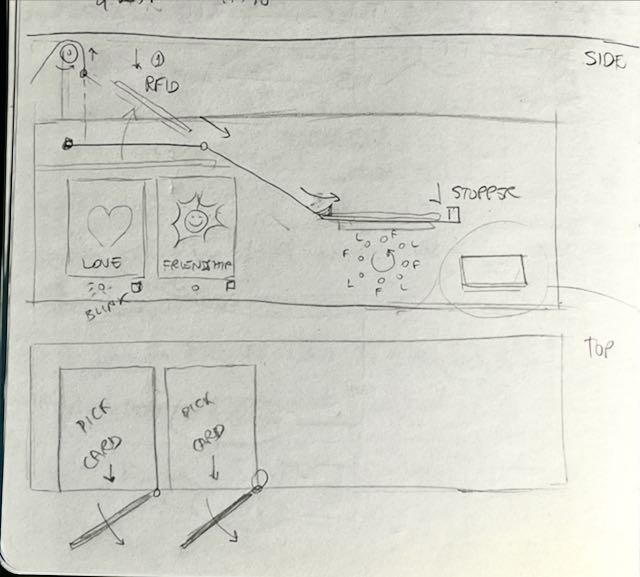 SIDE
↓ ①
RFID
STOPPER
LOVE
FRIENDSHIP
BLINK
L F
F L
F F
L L
F
TOP
PICK
CARD
PICK
CARD